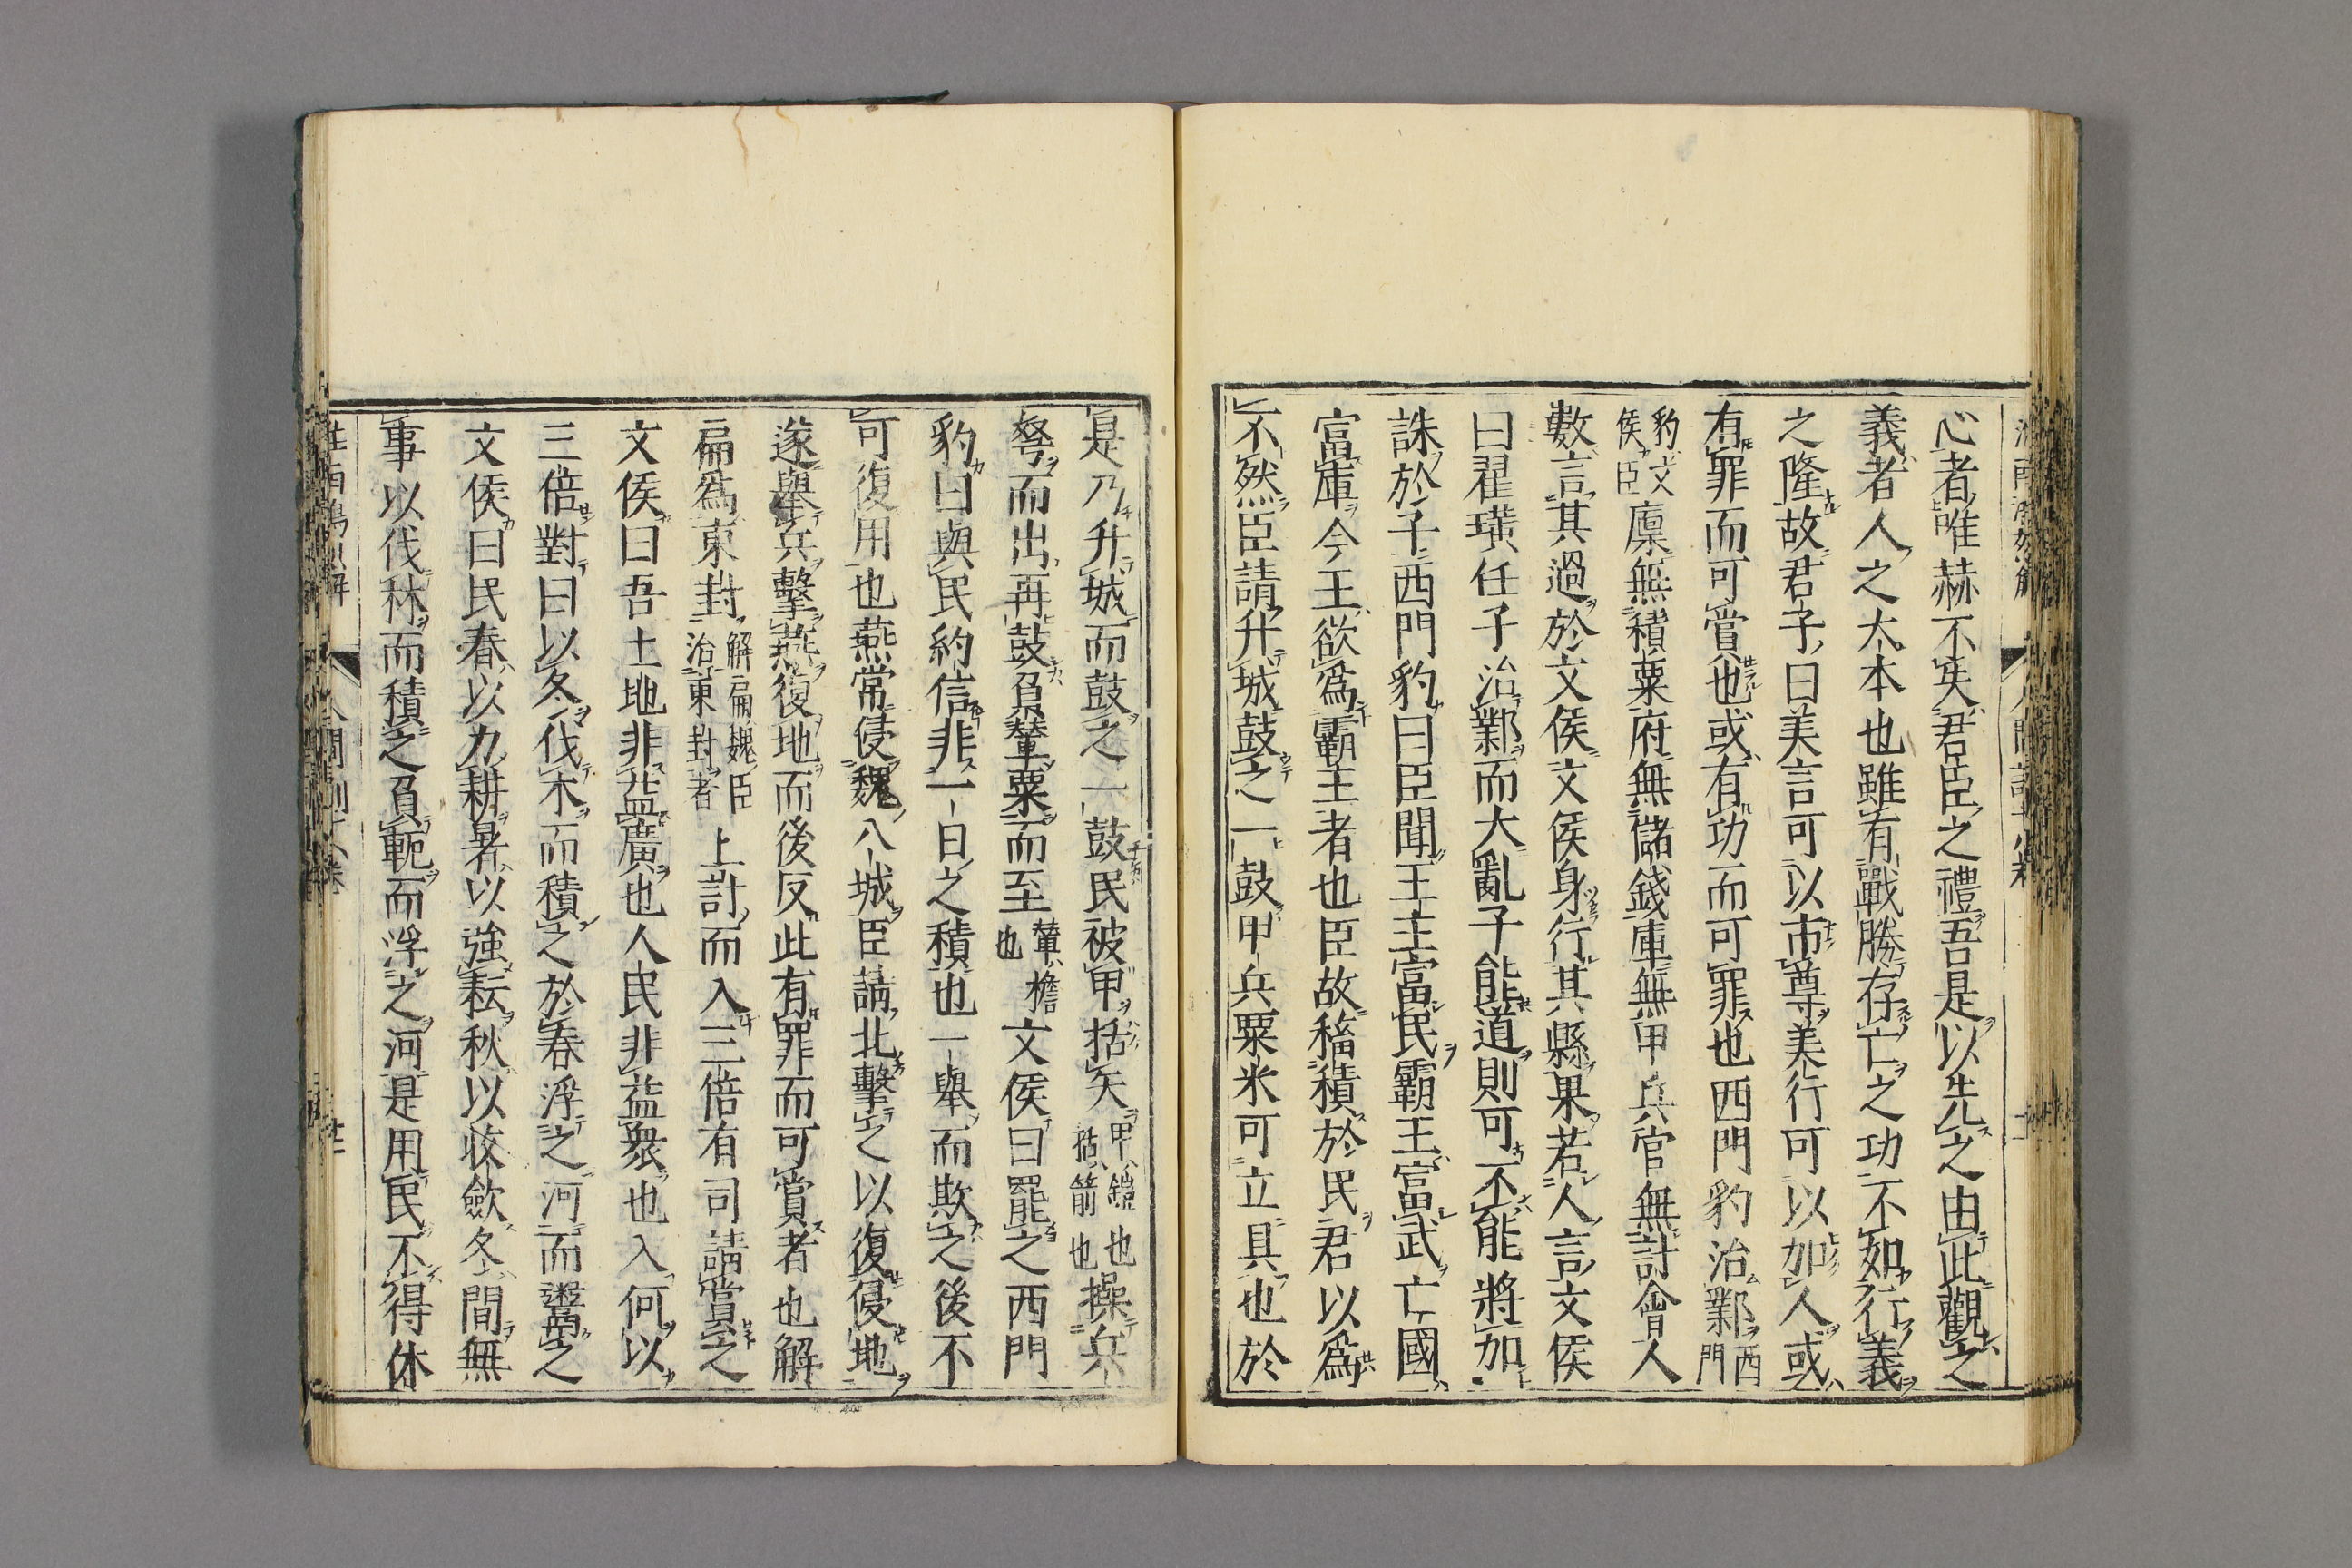 心者唯赫不失君臣之禮吾是以先之由此觀之
義者人之大本也雖有戰勝存亡之功不如行義
之隆故君子曰美言可以市尊美行可以加人或
有罪而可賞也或有功而可罪也西門豹治鄴西門
豹文侯臣廩無積粟府無儲錢庫無甲兵官無計會人
數言其過於文侯文侯身行其縣果若人言文侯
曰翟璜任子治鄴而大亂子能道則可不能將加
誅於子西門豹曰臣聞王主富民霸王富武亡國
富庫今王欲爲霸王者也臣故稸積於民君以爲
不然臣請升城鼓之一鼓甲兵粟米可立具也於
是乃升城而鼓之一鼓民被甲括矢甲鎧也括箭也操兵
弩而出再鼓負輦粟而至輦檐也文侯曰罷之西門
豹曰與民約信非一日之積也一舉而欺之後不
可復用也燕常侵魏八城臣請北擊之以復侵地
遂舉兵擊燕復地而後反此有罪而可賞者也解
扁爲東封解扁魏臣治東封者上計而入三倍有司請賞之
文侯曰吾土地非益廣也人民非益衆也入何以
三倍對曰以冬伐木而積之於春浮之河而鬻之
文侯曰民春以力耕暑以強耘秋以收斂冬間無
事以伐林而積之負軛而浮之河是用民不得休